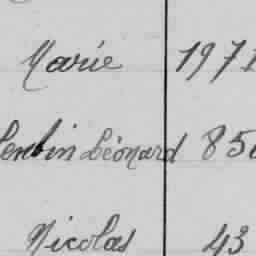 Marie 197
Léonard 85
Nicolas 43